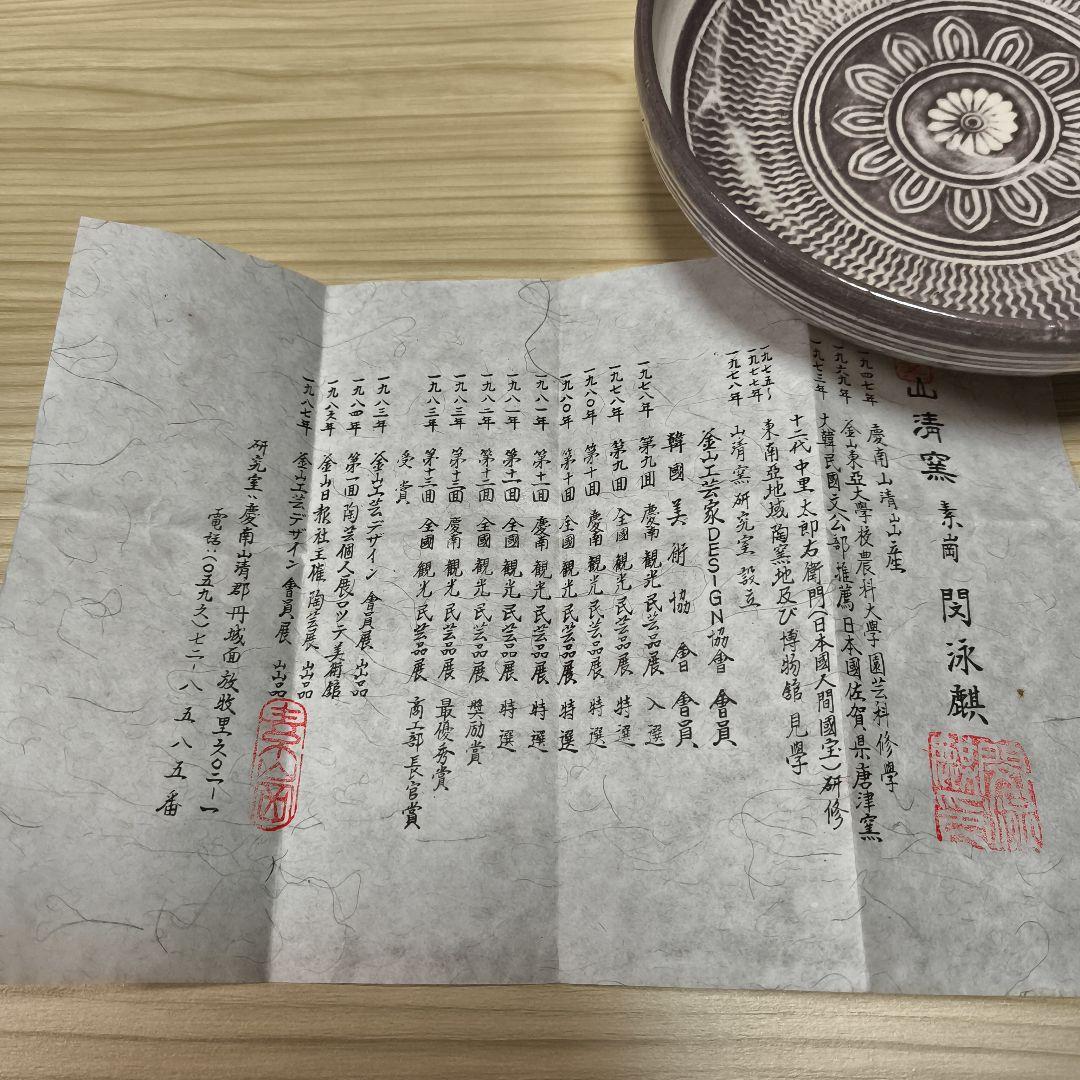 山清窯 素崗 閔泳麒
一九四七年 慶南山清山産
一九六九年 釜山東亞大學校農科大學園芸科修學
一九七三年 大韓民國文公部推薦日本國佐賀県唐津窯
十二代中里太郎右衛門(日本國人間國宝)研修
一九七五〜一九七七年 東南亞地域陶窯地及び博物館見學
一九七八年 山清窯研究室設立
釜山工芸家DESIGN協會 會員
韓國美術協會 會員
一九七八年 第九回 慶南観光民芸品展 入選
一九七八年 第九回 全國観光民芸品展 特選
一九八〇年 第十回 慶南観光民芸品展 特選
一九八〇年 第十回 全國観光民芸品展 特選
一九八一年 第十一回 慶南観光民芸品展 特選
一九八一年 第十一回 全國観光民芸品展 特選
一九八二年 第十二回 全國観光民芸品展 奬励賞
一九八三年 第十三回 慶南観光民芸品展 最優秀賞
一九八三年 第十三回 全國観光民芸品展 商工部長官賞
受賞
一九八三年 釜山工芸デザイン會員展 出品
一九八四年 第一回陶芸個人展ロッテ美術館
一九八六年 釜山日報社主催陶芸展 出品
一九八七年 釜山工芸デザイン會員展 出品
研究室:慶南山清郡丹城面放牧里六〇二-一
電話:(〇五九六)七二-八五八五番